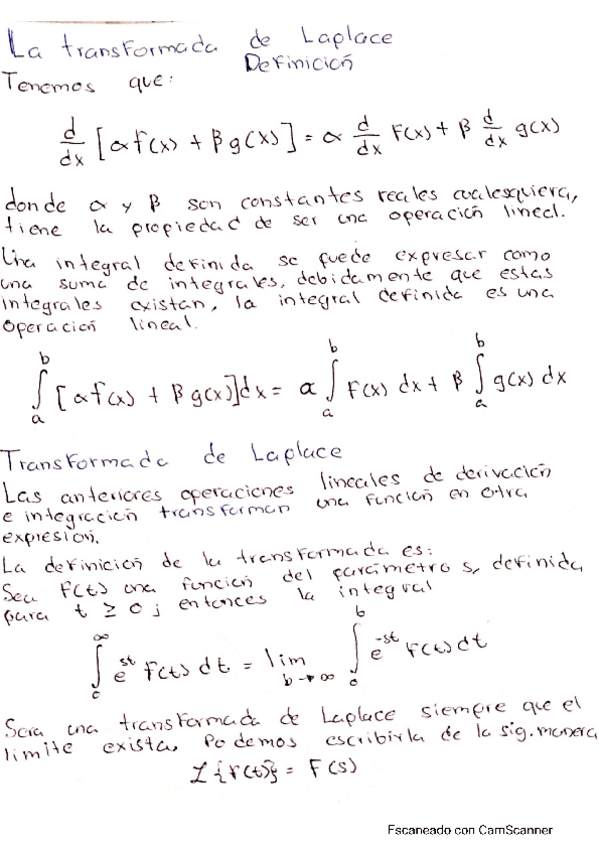 La transformada de Laplace
Definición
Tenemos que:
d/dx [αf(x) + βg(x)] = α d/dx F(x) + β d/dx g(x)
donde α y β son constantes reales cualesquiera,
tiene la propiedad de ser una operación lineal.
Una integral definida se puede expresar como
una suma de integrales, debidamente que estas
integrales existan, la integral definida es una
operación lineal.
∫_a^b [αf(x) + βg(x)]dx = α ∫_a^b F(x) dx + β ∫_a^b g(x) dx
Transformada de Laplace
Las anteriores operaciones lineales de derivación
e integración transforman una función en otra
expresión.
La definición de la transformada es:
Sea f(t) una función del parámetro s, definida
para t ≥ 0; entonces la integral
∫_0^∞ e^st F(t) dt = lim_{b→∞} ∫_0^b e^-st F(t) dt
Sera una transformada de Laplace siempre que el
limite exista, Podemos escribirla de la sig. manera
ℒ{f(t)} = F(s)
Escaneado con CamScanner